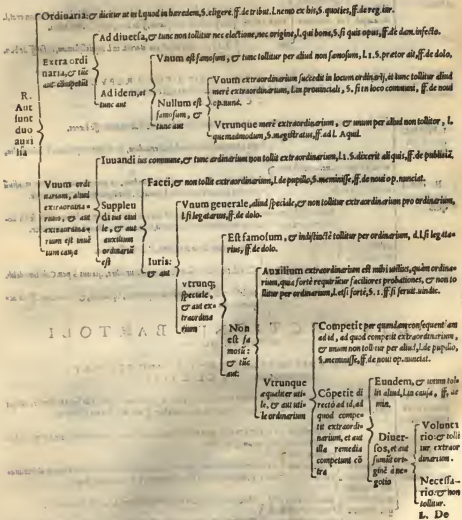 Ordinaria: & dicitur ut in l. quod in haeredem, S. eligere, ff. de tribut. l. nemo ex his, S. quoties, ff. de reg. iur.
Ad diuersa, & tunc non tollitur nec electione, nec origine, l. qui bona, S. si quis opus, ff. de dam. infecto.
Extra ordi
naria, & tūc
aut competūt
Vnum est famosum, & tunc tollitur per aliud non famosum, l. 1. S. praetor ait, ff. de dolo.
Ad idem, et
tunc aut
Vnum extraordinarium succedit in locum ordinarij, et tunc tollitur aliud
merè extraordinarium, l. in prouinciali, S. si in loco communi, ff. de noui
op. nunc.
Nullum est
famosum, &
tunc aut
Vtrunque merè extraordinarium, & unum per aliud non tollitur, l.
quemadmodum, S. magistratus, ff. ad l. Aqui.
R.
Aut
sunt
duo
auxi
lia
Iuuandi ius commune, & tunc ordinarium non tollit extraordinarium, l. 1. S. dixerit aliquis, ff. de
Vnum ordi
narium, aliud
extraordina
rium, & aut
extraordina
rium est inuē
tum causa
Suppleu
di ius ciui
le, & aut
auxilium
ordinariū
est
Facti, & non tollit extraordinarium, l. de pupillo, S. meminisse, ff. de noui op. nunciat.
Iuris:
& aut
Vnum generale, aliud speciale, & non tollitur extraordinarium pro ordinarium,
l. si legatarius, ff. de dolo.
vtrunq;
speciale,
& aut ex
traordina
rium
Est famosum, & indistinctè tollitur per ordinarium, d. l. si legata
rius, ff. de dolo.
Non
est fa
mosū:
& tūc
aut
Auxilium extraordinarium est mihi utilius, quàm ordina
rium, quia fortè requirūtur faciliores probationes, & non to
llitur per ordinarium, l. etsi fortè, S. 1. ff. si seruit. uindic.
Vtrunque
aequaliter uti
le, & aut uti
le ordinarium
Competit per quandam consequentiam
ad id, ad quod competit extraordinarium,
& unum non tollitur per aliud, l. de pupillo,
S. meminisse, ff. de noui op. nunciat.
Cōpetit di
rectò ad id, ad
quod compe
tit extraordi
narium, et aut
illa remedia
competunt cō
tra
Eundem, & unum tol
lit aliud, l. in causa, ff. de
min.
Diuer-
sos, et aut
sumūt ori-
ginē à ne
gotio
Volunta
rio: & tol
litur extraor
dinarium.
Necessa-
rio: & non
tollitur.
L. De